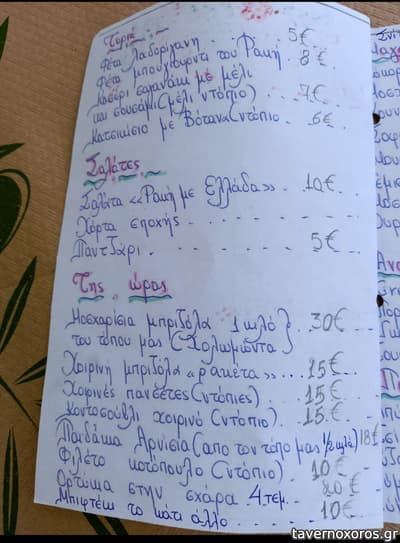 Τυριά
Φέτα Λαδορίγανη . . . 5€
Φέτα μπουγιουρντί του Ρακή . 8€
Κασέρι σαγανάκι με μέλι
και σουσάμι (μέλι ντόπιο) . . . 7€
Κατσικίσιο με Βότανα (ντόπιο . . 6€
Σαλάτες
Σαλάτα «Ρακή με Ελλάδα» . . 10€ .
Χόρτα εποχής - - - - - -
Παντζάρι . - - - - - 5€
Της ώρας
Μοσχαρίσια μπριζόλα 1 κιλό } . . 30€
του τόπου μας (Χολωμώντα
Χοιρινή μπριζόλα «ρακέτα» . . . 15€
Χοιρινές πανσέτες (ντόπιες) . . 15€
Κοντοσούβλι χοιρινό (ντόπιο) . . 15€
Παϊδάκια Αρνίσια (από τον τόπο μας 1/2 κιλό) 18€
Φιλέτο κοτόπουλο (ντόπιο) . . 10€
Ορτύκια στην σχάρα 4 τεμ. . .
Μπιφτέκι το κάτι άλλο . . . . 10€
tavernoxoros.gr